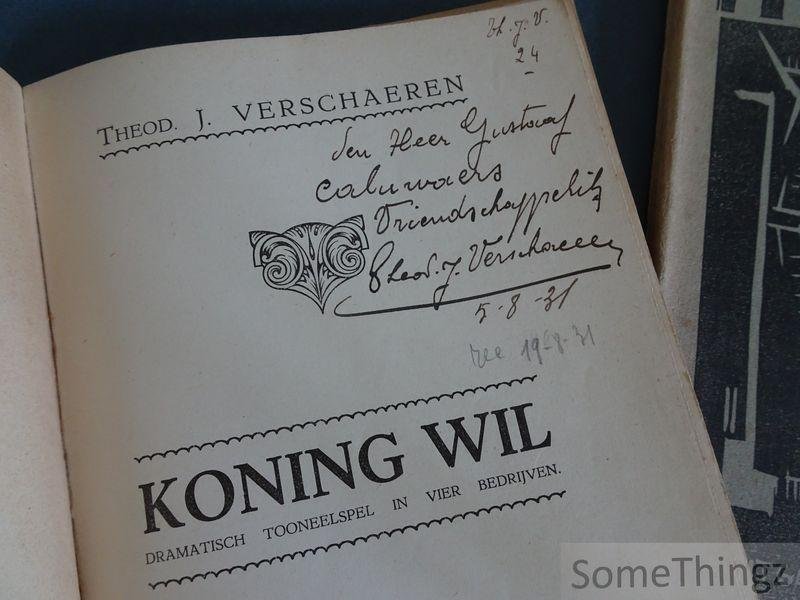 Th. J. V.
24
THEOD. J. VERSCHAEREN
den Heer Gustaaf
Caluwaers
Vriendschappelijk
Theod. J. Verschaeren
5-8-31
rec 19-8-31
KONING WIL
DRAMATISCH TOONEELSPEL IN VIER BEDRIJVEN.
SomeThingz